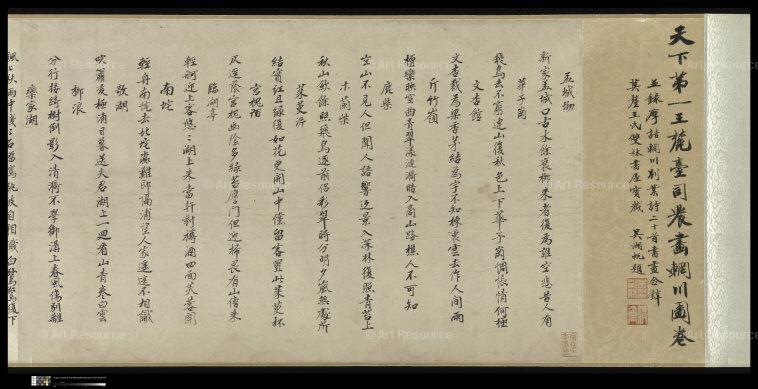 天下第一王麓臺司農畫輞川圖卷
並錄摩詰輞川別業詩二十首書畫合璧
莫釐王氏雙林書屋寶藏 吳湖帆題
孟城坳
新家孟城口古木餘衰柳來者復為誰空悲昔人有
華子岡
飛鳥去不窮連山復秋色上下華子崗惆悵情何極
文杏館
文杏裁為梁香茅結為宇不知棟裏雲去作人間雨
斤竹嶺
檀欒映空曲青翠漾漣漪暗入商山路樵人不可知
鹿柴
空山不見人但聞人語響返景入深林復照青苔上
木蘭柴
秋山斂餘照飛鳥逐前侶彩翠時分明夕嵐無處所
茱萸沜
結實紅且綠復如花更開山中儻留客置此茱萸杯
宮槐陌
仄逕蔭宮槐幽陰多綠苔應門但迎掃畏有山僧來
臨湖亭
輕舸迎上客悠悠湖上來當軒對樽酒四面芙蓉開
南垞
輕舟南垞去北垞淼難即隔浦望人家遙遙不相識
欹湖
吹簫凌極浦日暮送夫君湖上一迴看山青卷白雲
柳浪
分行接綺樹倒影入清漪不學御溝上春風傷別離
欒家瀨
颯颯秋雨中淺淺石溜瀉跳波自相濺白鷺驚復下
Art Resource